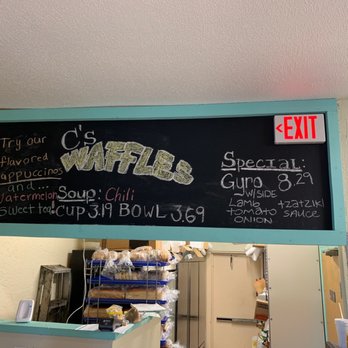 Try our
flavored
appuccinos
and...
watermelon
sweet tea!
C's
WAFFLES
Soup: Chili
CUP 3.19 BOWL 3.69
Special:
Gyro 8.29
W/SIDE
Lamb
tomato
ONION
tzatziki
SAUCE
<EXIT